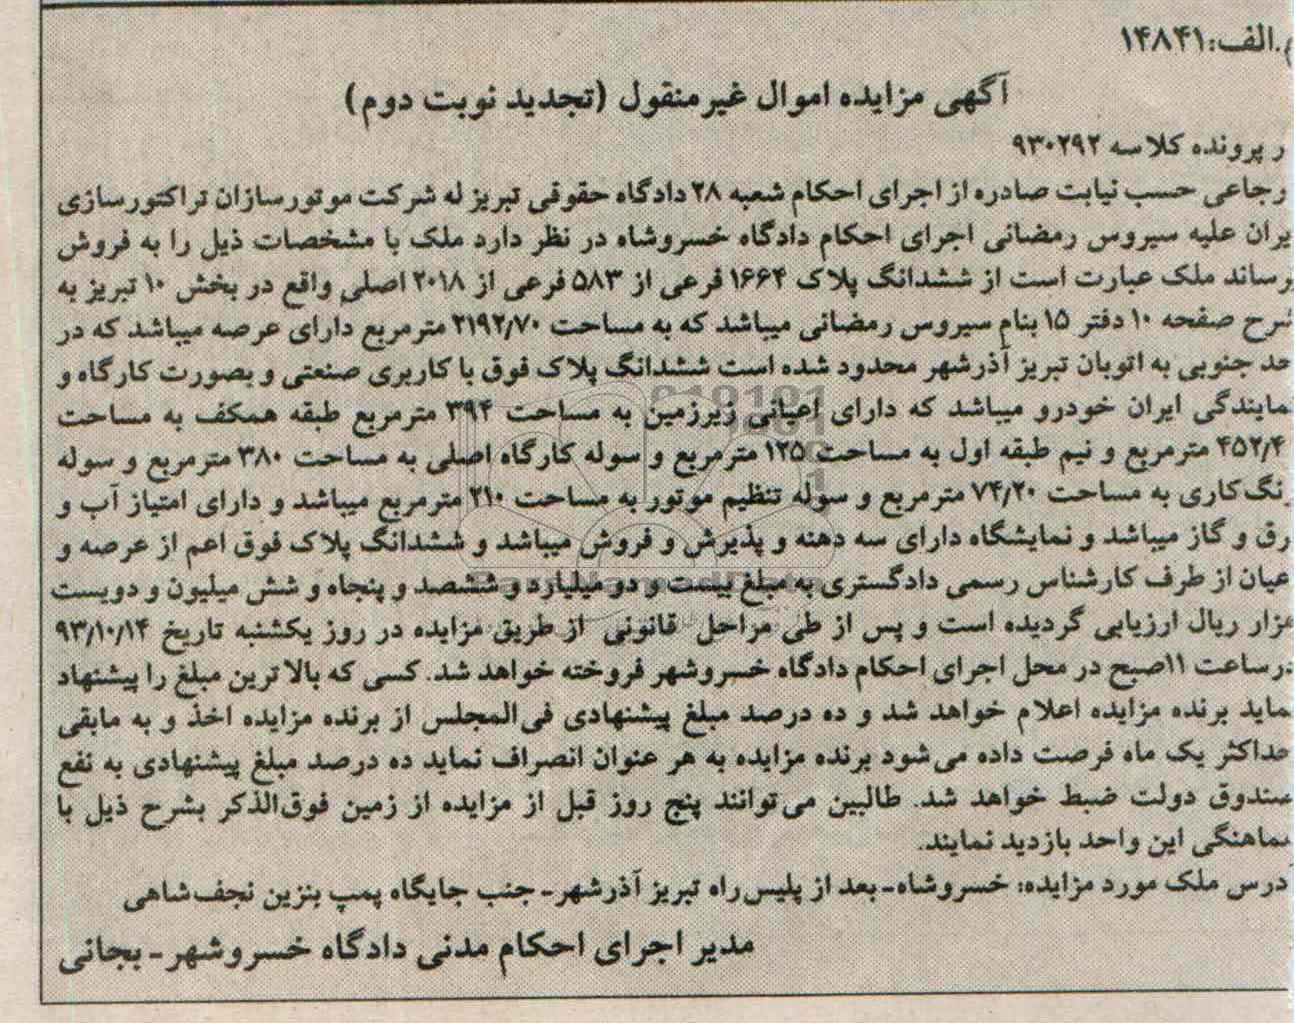 م.الف:۱۴۸۴۱
آگهی مزایده اموال غیرمنقول (تجدید نوبت دوم)
ر پرونده کلاسه ۹۳۰۲۹۲
رجاعی حسب نیابت صادره از اجرای احکام شعبه ۲۸ دادگاه حقوقی تبریز له شرکت موتورسازان تراکتورسازی
یران علیه سیروس رمضانی اجرای احکام دادگاه خسروشاه در نظر دارد ملک با مشخصات ذیل را به فروش
رساند ملک عبارت است از ششدانگ پلاک ۱۶۶۴ فرعی از ۵۸۳ فرعی از ۲۰۱۸ اصلی واقع در بخش ۱۰ تبریز به
شرح صفحه ۱۰ دفتر ۱۵ بنام سیروس رمضانی میباشد که به مساحت ۲۱۹۲/۷۰ مترمربع دارای عرصه میباشد که در
حد جنوبی به اتوبان تبریز آذرشهر محدود شده است ششدانگ پلاک فوق با کاربری صنعتی و بصورت کارگاه و
نمایندگی ایران خودرو میباشد که دارای اعیانی زیرزمین به مساحت ۳۹۴ مترمربع طبقه همکف به مساحت
۴۵۲/۴ مترمربع و نیم طبقه اول به مساحت ۱۲۵ مترمربع و سوله کارگاه اصلی به مساحت ۳۸۰ مترمربع و سوله
رنگ‌کاری به مساحت ۷۴/۲۰ مترمربع و سوله تنظیم موتور به مساحت ۲۱۰ مترمربع میباشد و دارای امتیاز آب و
رق و گاز میباشد و نمایشگاه دارای سه دهنه و پذیرش و فروش میباشد و ششدانگ پلاک فوق اعم از عرصه و
عیان از طرف کارشناس رسمی دادگستری به مبلغ بیست و دو میلیارد و ششصد و پنجاه و شش میلیون و دویست
هزار ریال ارزیابی گردیده است و پس از طی مراحل قانونی از طریق مزایده در روز یکشنبه تاریخ ۹۳/۱۰/۱۴
درساعت ۱۱صبح در محل اجرای احکام دادگاه خسروشهر فروخته خواهد شد. کسی که بالاترین مبلغ را پیشنهاد
نماید برنده مزایده اعلام خواهد شد و ده درصد مبلغ پیشنهادی فی‌المجلس از برنده مزایده اخذ و به مابقی
حداکثر یک ماه فرصت داده می‌شود برنده مزایده به هر عنوان انصراف نماید ده درصد مبلغ پیشنهادی به نفع
صندوق دولت ضبط خواهد شد. طالبین می‌توانند پنج روز قبل از مزایده از زمین فوق‌الذکر بشرح ذیل با
هماهنگی این واحد بازدید نمایند.
درس ملک مورد مزایده: خسروشاه-بعد از پلیس‌راه تبریز آذرشهر-جنب جایگاه پمپ بنزین نجف‌شاهی
مدیر اجرای احکام مدنی دادگاه خسروشهر-بجانی